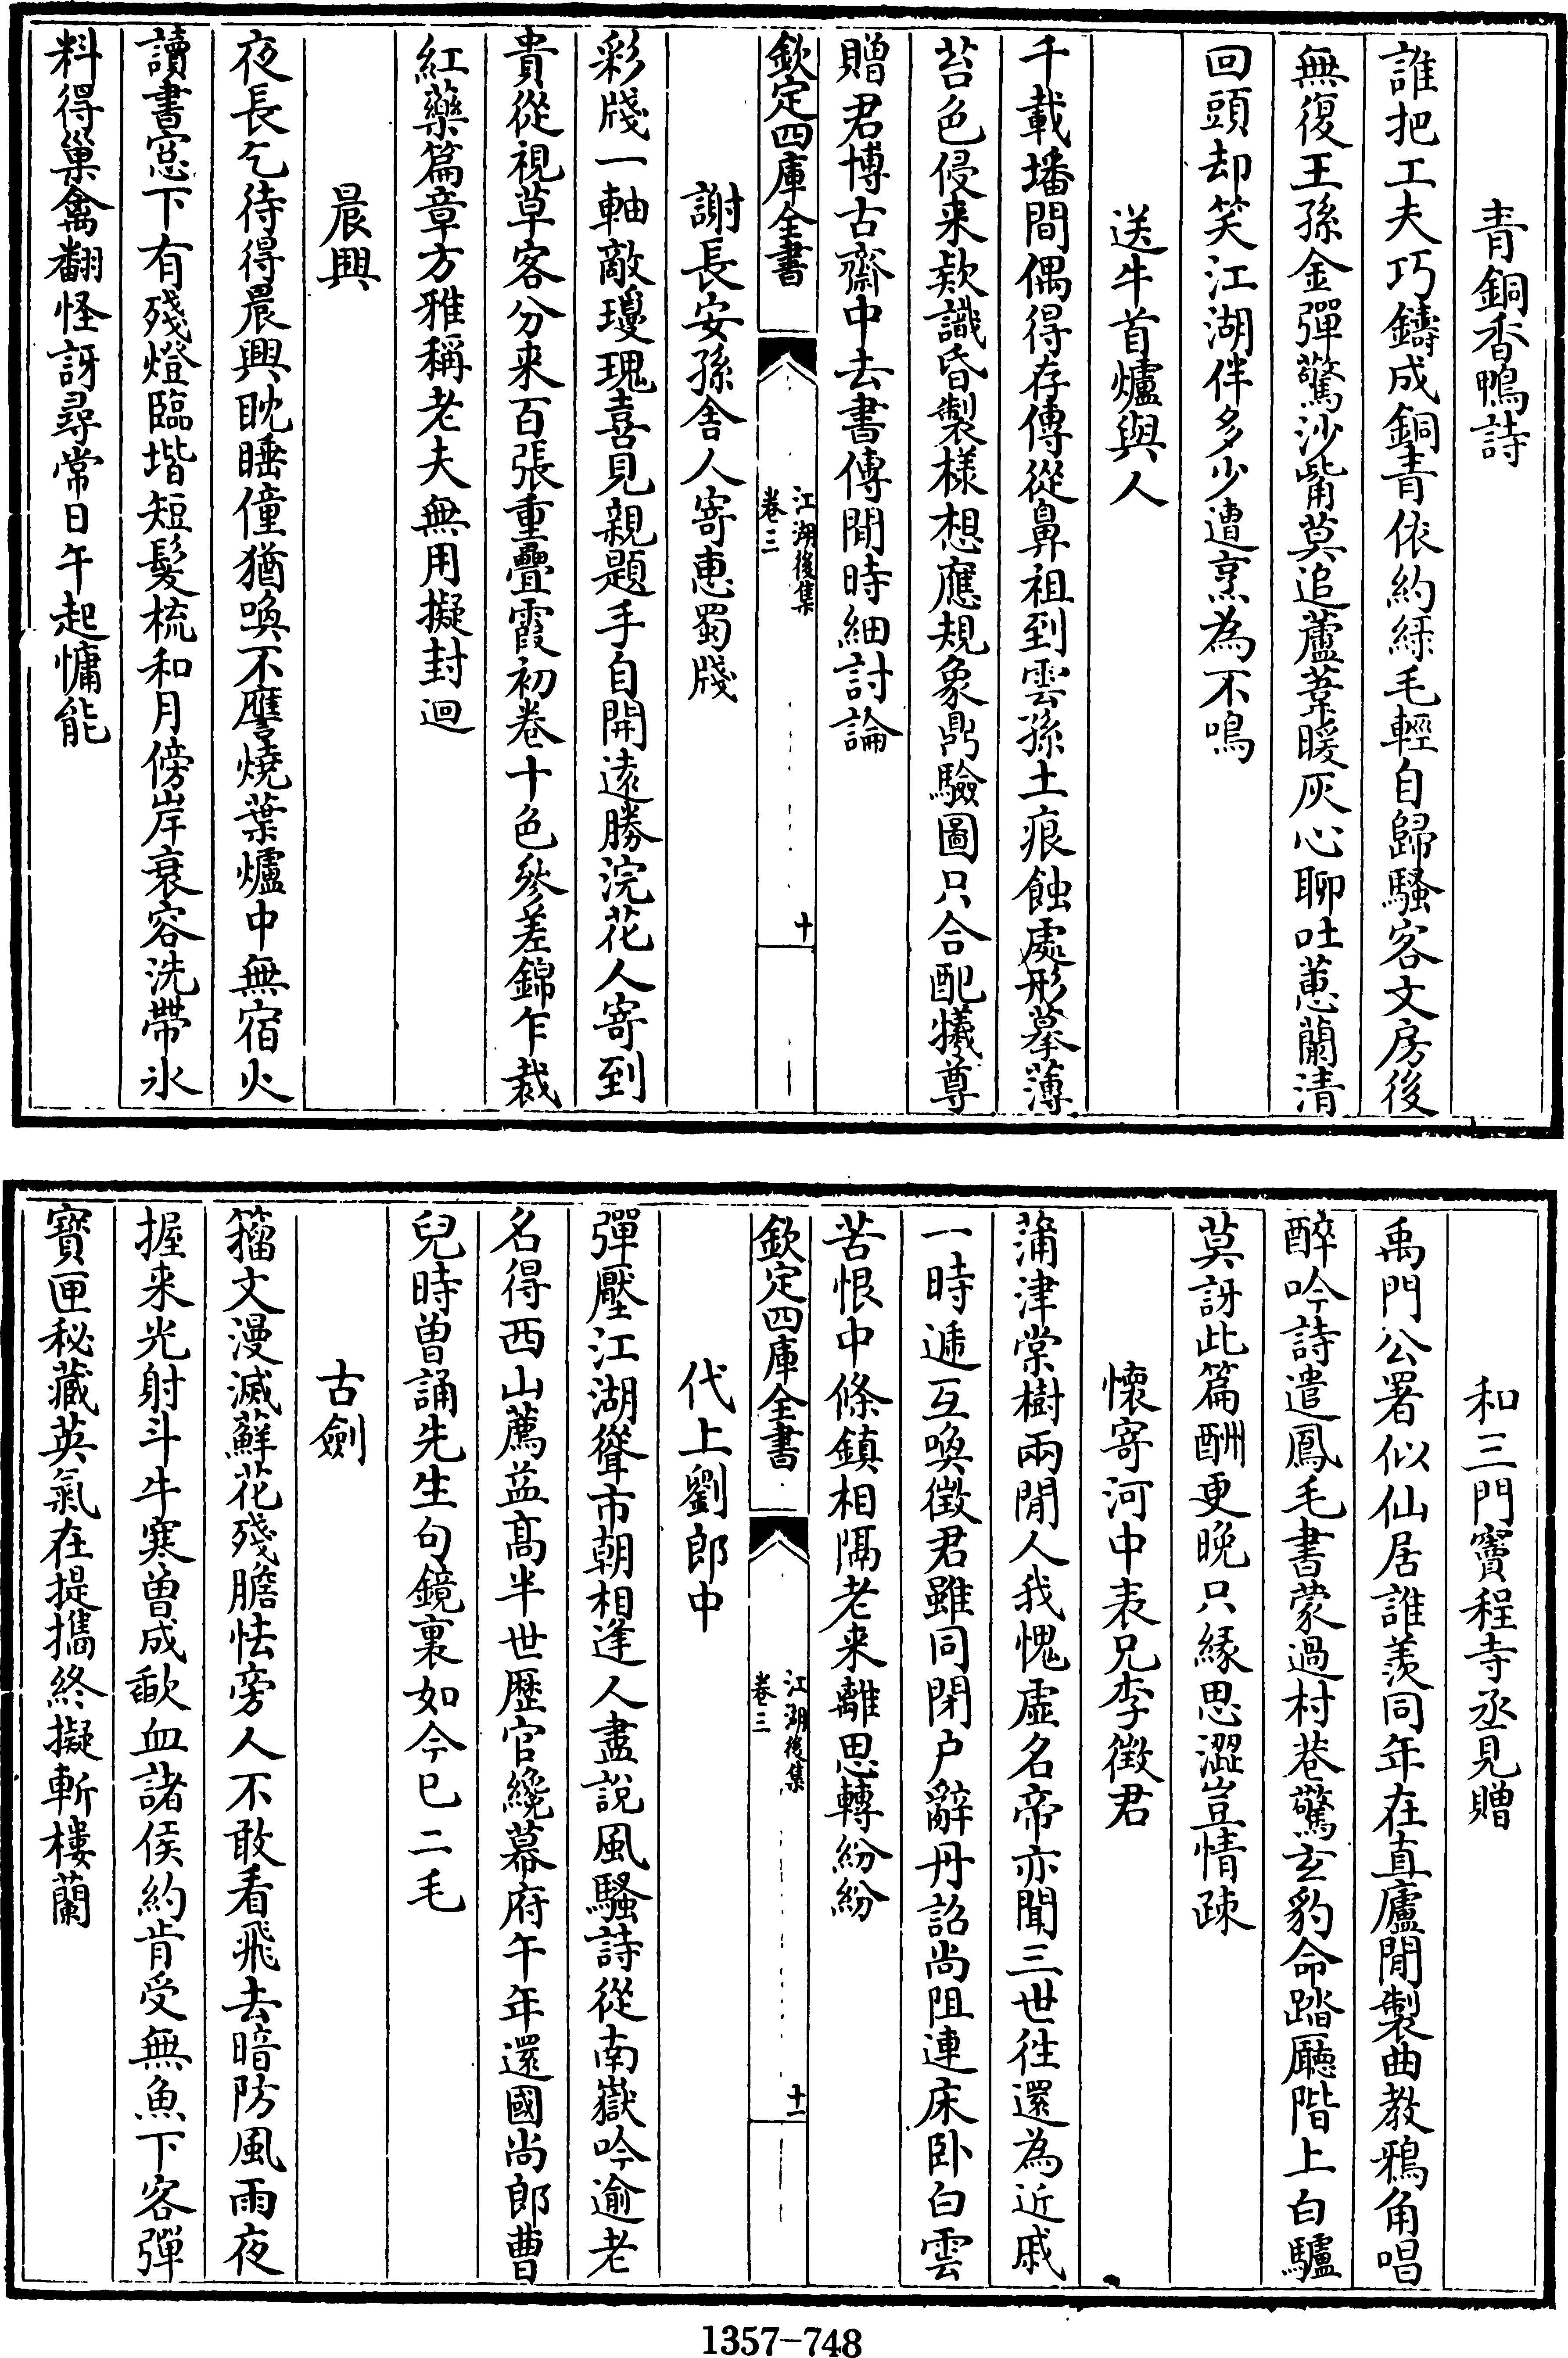 青銅香鴨詩
誰把工夫巧鑄成銅青依約綠毛輕自歸騷客文房後
無復王孫金彈驚沙觜莫追蘆葦暖灰心聊吐蕙蘭清
回頭却笑江湖伴多少遭烹為不鳴
送牛首爐與人
千載墦間偶得存傳從鼻祖到雲孫土痕蝕處形摹薄
苔色侵来欵識昏製樣想應規象鼎驗圖只合配犧尊
贈君博古齋中去書傳閒時細討論
欽定四庫全書
江湖後集
卷三
十
謝長安孫舍人寄惠蜀牋
彩牋一軸敵瓊瑰喜見親題手自開逺勝浣花人寄到
貴從視草客分来百張重疊霞初卷十色參差錦乍裁
紅藥篇章方雅稱老夫無用擬封迴
晨興
夜長乞待得晨興眈睡僮猶喚不譍燒葉爐中無宿火
讀書窓下有殘燈臨堦短髮梳和月傍岸衰容洗帶氷
料得巢禽翻怪訝尋常日午起慵能
和三門竇程寺丞見贈
禹門公署似仙居誰羨同年在直廬閒製曲教鴉角唱
醉吟詩遣鳳毛書蒙過村巷驚玄豹命踏廳階上白驢
莫訝此篇酬更晚只緣思澀豈情疎
懷寄河中表兄李徵君
蒲津棠樹兩閒人我愧虛名帝亦聞三世徃還為近戚
一時逓互喚徵君雖同閉户辭丹詔尚阻連床卧白雲
苦恨中條鎮相隔老来離思轉紛紛
欽定四庫全書
江湖後集
卷三
十一
代上劉郎中
彈壓江湖聳市朝相逢人盡說風騷詩從南嶽吟逾老
名得西山薦益髙半世歴官纔幕府午年還國尚郎曹
兒時曽誦先生句鏡裏如今已二毛
古劍
籀文漫滅蘚花殘膽怯旁人不敢看飛去暗防風雨夜
握来光射斗牛寒曽成歃血諸侯約肯受無魚下客彈
寶匣秘藏英氣在提攜終擬斬樓蘭
1357-748